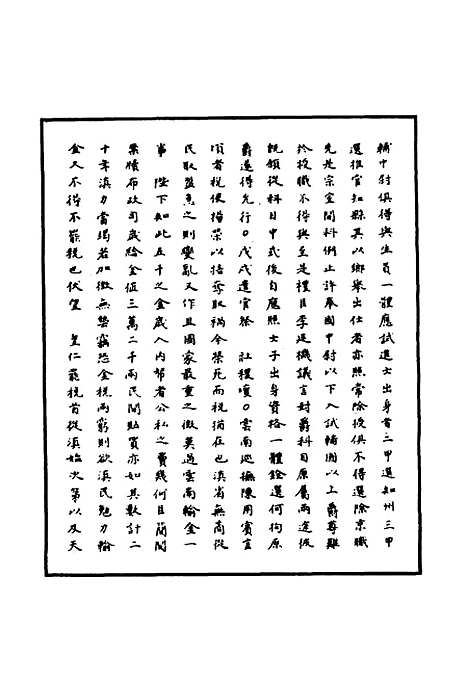 輔中尉俱得與生員一體應試進士出身者二甲選知州三甲
選推官知縣其以鄉舉出仕者亦照常除授俱不得選除京職
先是宗室開科例止許奉國中尉以下入試輔國以上爵尊難
於授職不得與至是禮目李廷機議言封爵科目原屬兩途彼
既領從科目中式後自應照士子出身資格一體銓選何拘原
爵遂得允行○戊戌遣官祭 社稷壇○雲南巡撫陳用賓言
頃者稅使楊榮以掊奪取禍今榮死而稅猶在也滇省無商從
民取盈急之則變亂又作且國家最重之徵莫過雲南輸金一
事 陛下知此五千之金歲入內帑者公私之費幾何目簡閱
案牘布政司歲給金價三萬二千兩民間貼賞亦如其數計二
十年滇力當竭若加徵無藝竊恐金稅兩窮則欲滇民勉力輸
金又不得不罷稅也伏望 皇仁罷稅首從滇始次第以及天